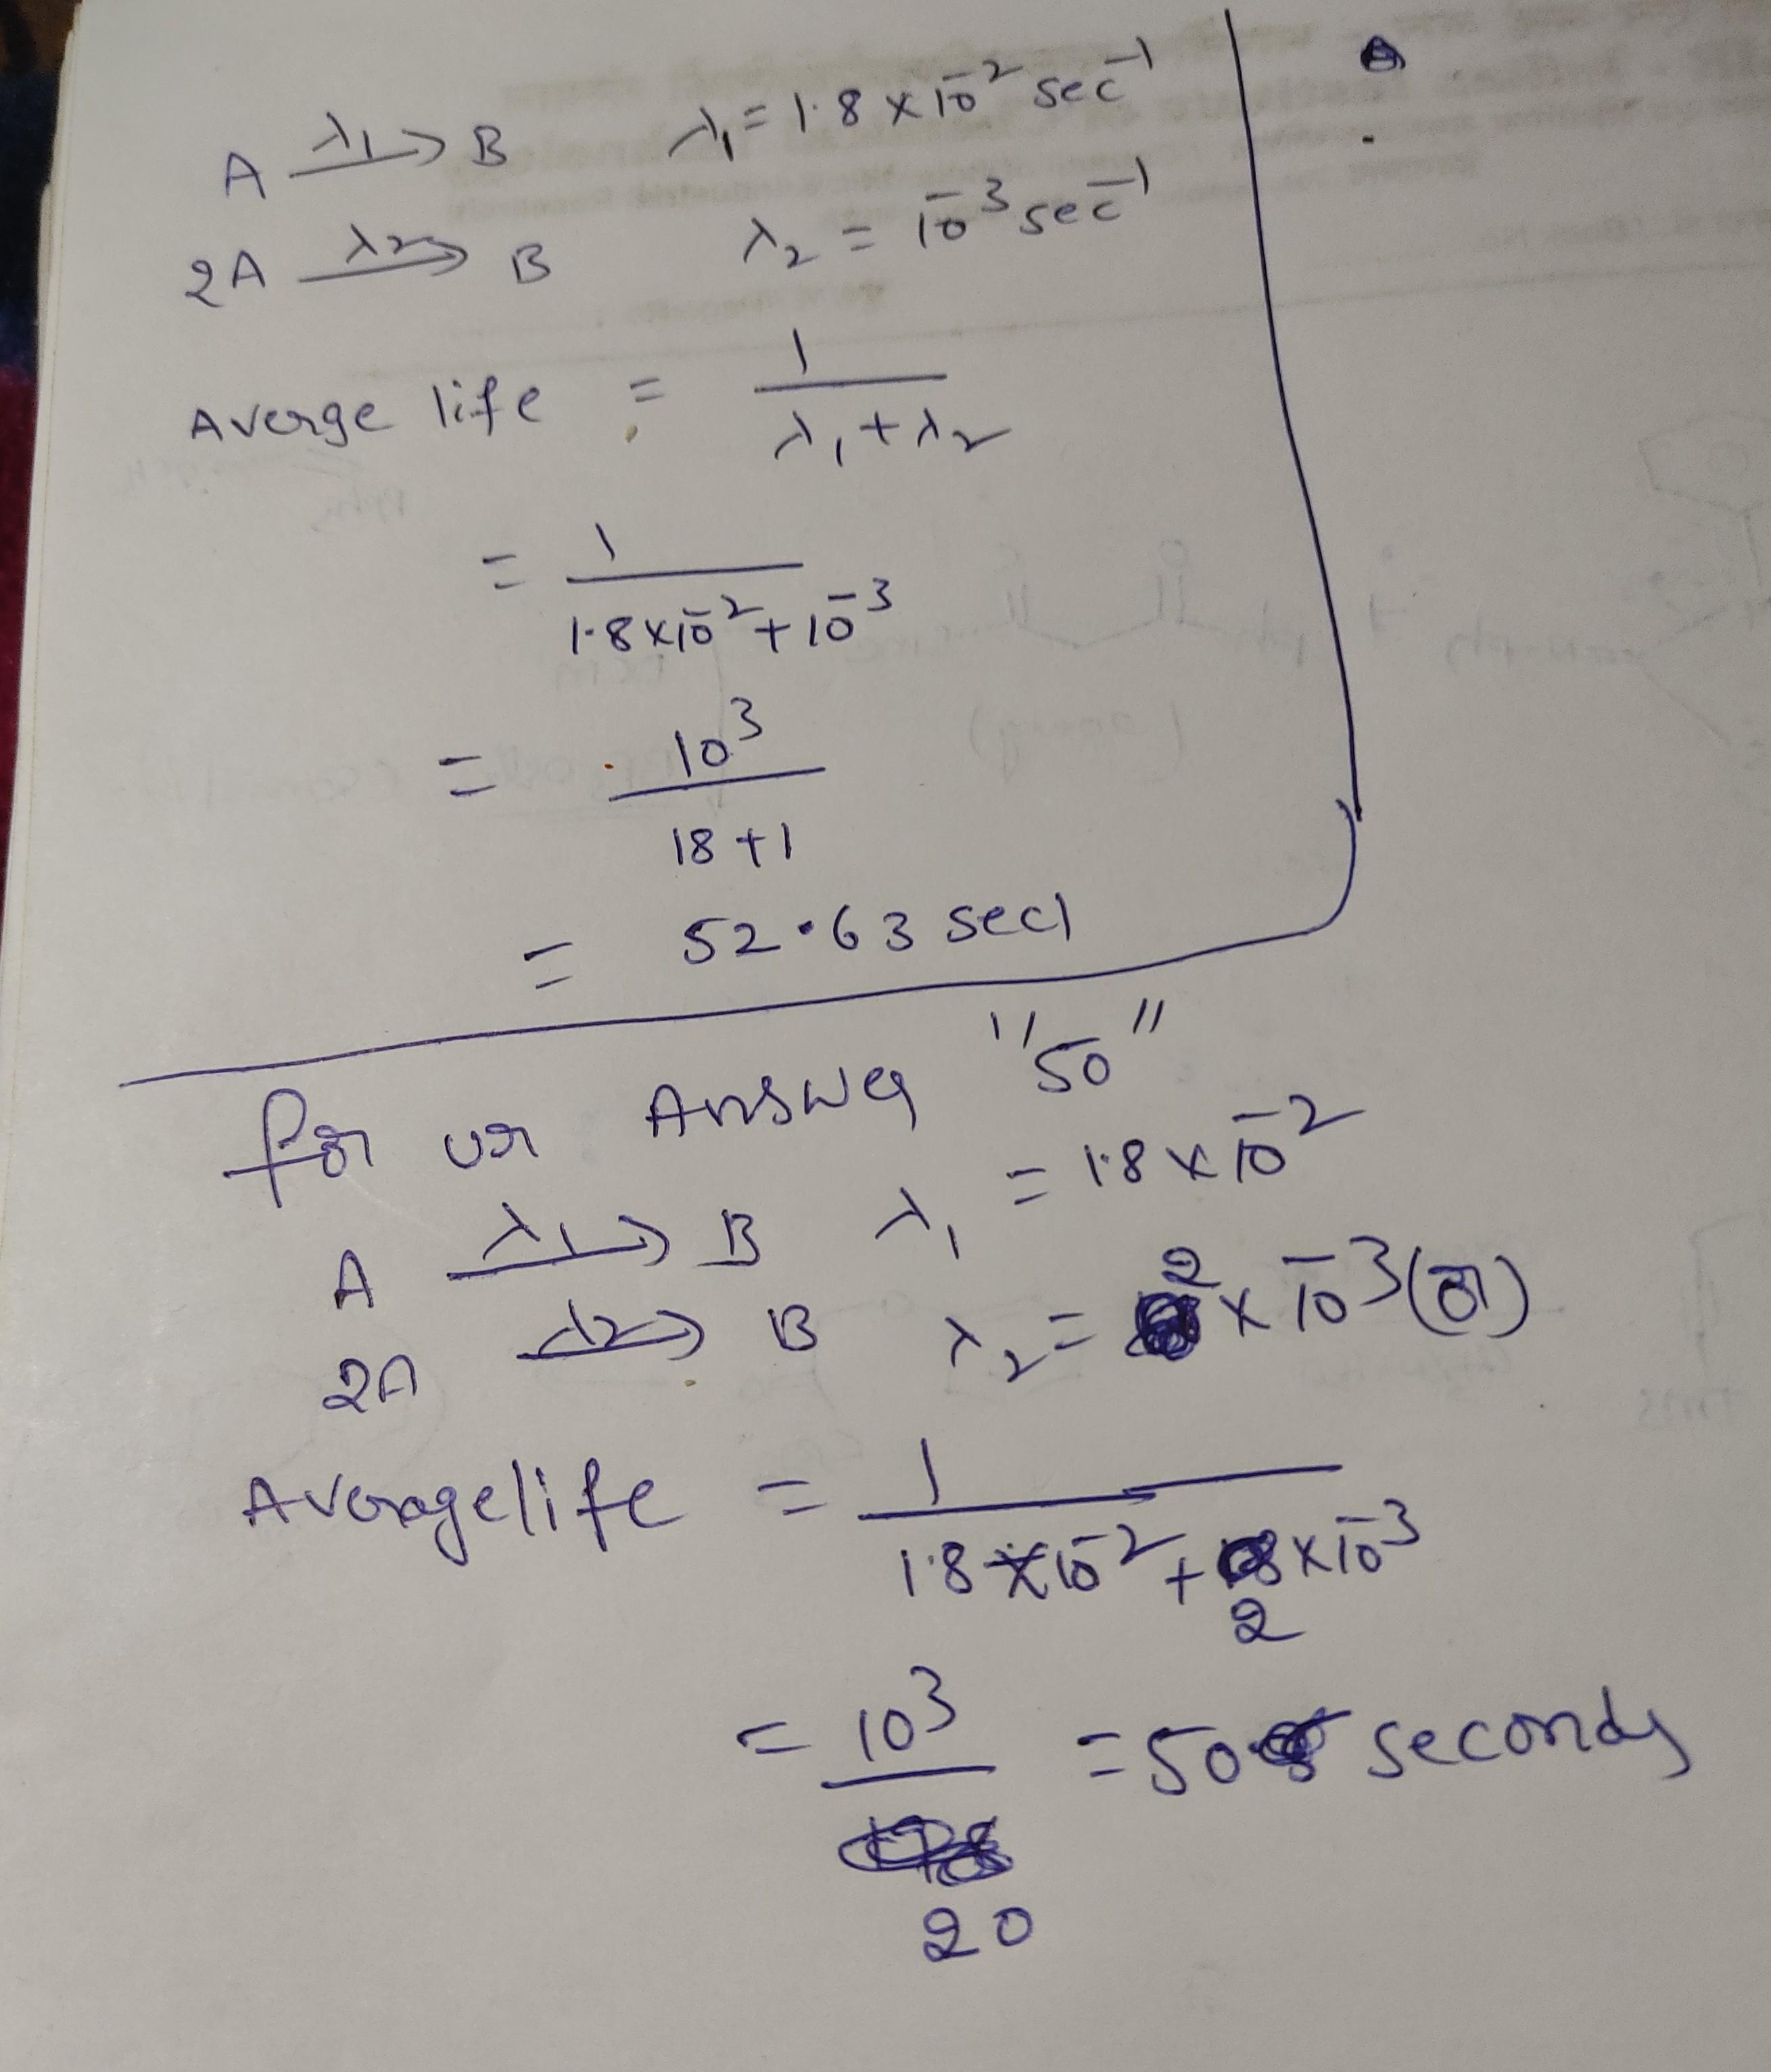 A λ1→ B λ1 = 1.8 × 10^-2 sec^-1
2A λ2→ B λ2 = 10^-3 sec^-1
Averge life = 1 / λ1 + λ2
= 1 / 1.8 × 10^-2 + 10^-3
= 10^3 / 18 + 1
= 52.63 sec
for ur Answer "50"
A λ1→ B λ1 = 1.8 × 10^-2
2A λ2→ B λ2 = 2 × 10^-3 (or)
Average life = 1 / 1.8 × 10^-2 + 2 × 10^-3
= 10^3 / 20 = 50 seconds